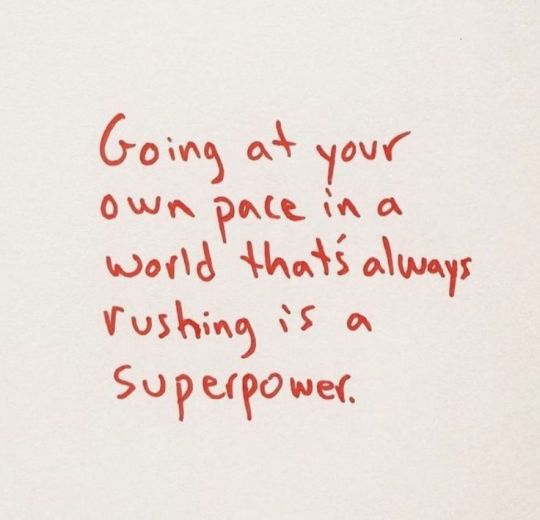 Going at your
own pace in a
world that's always
rushing is a
superpower.